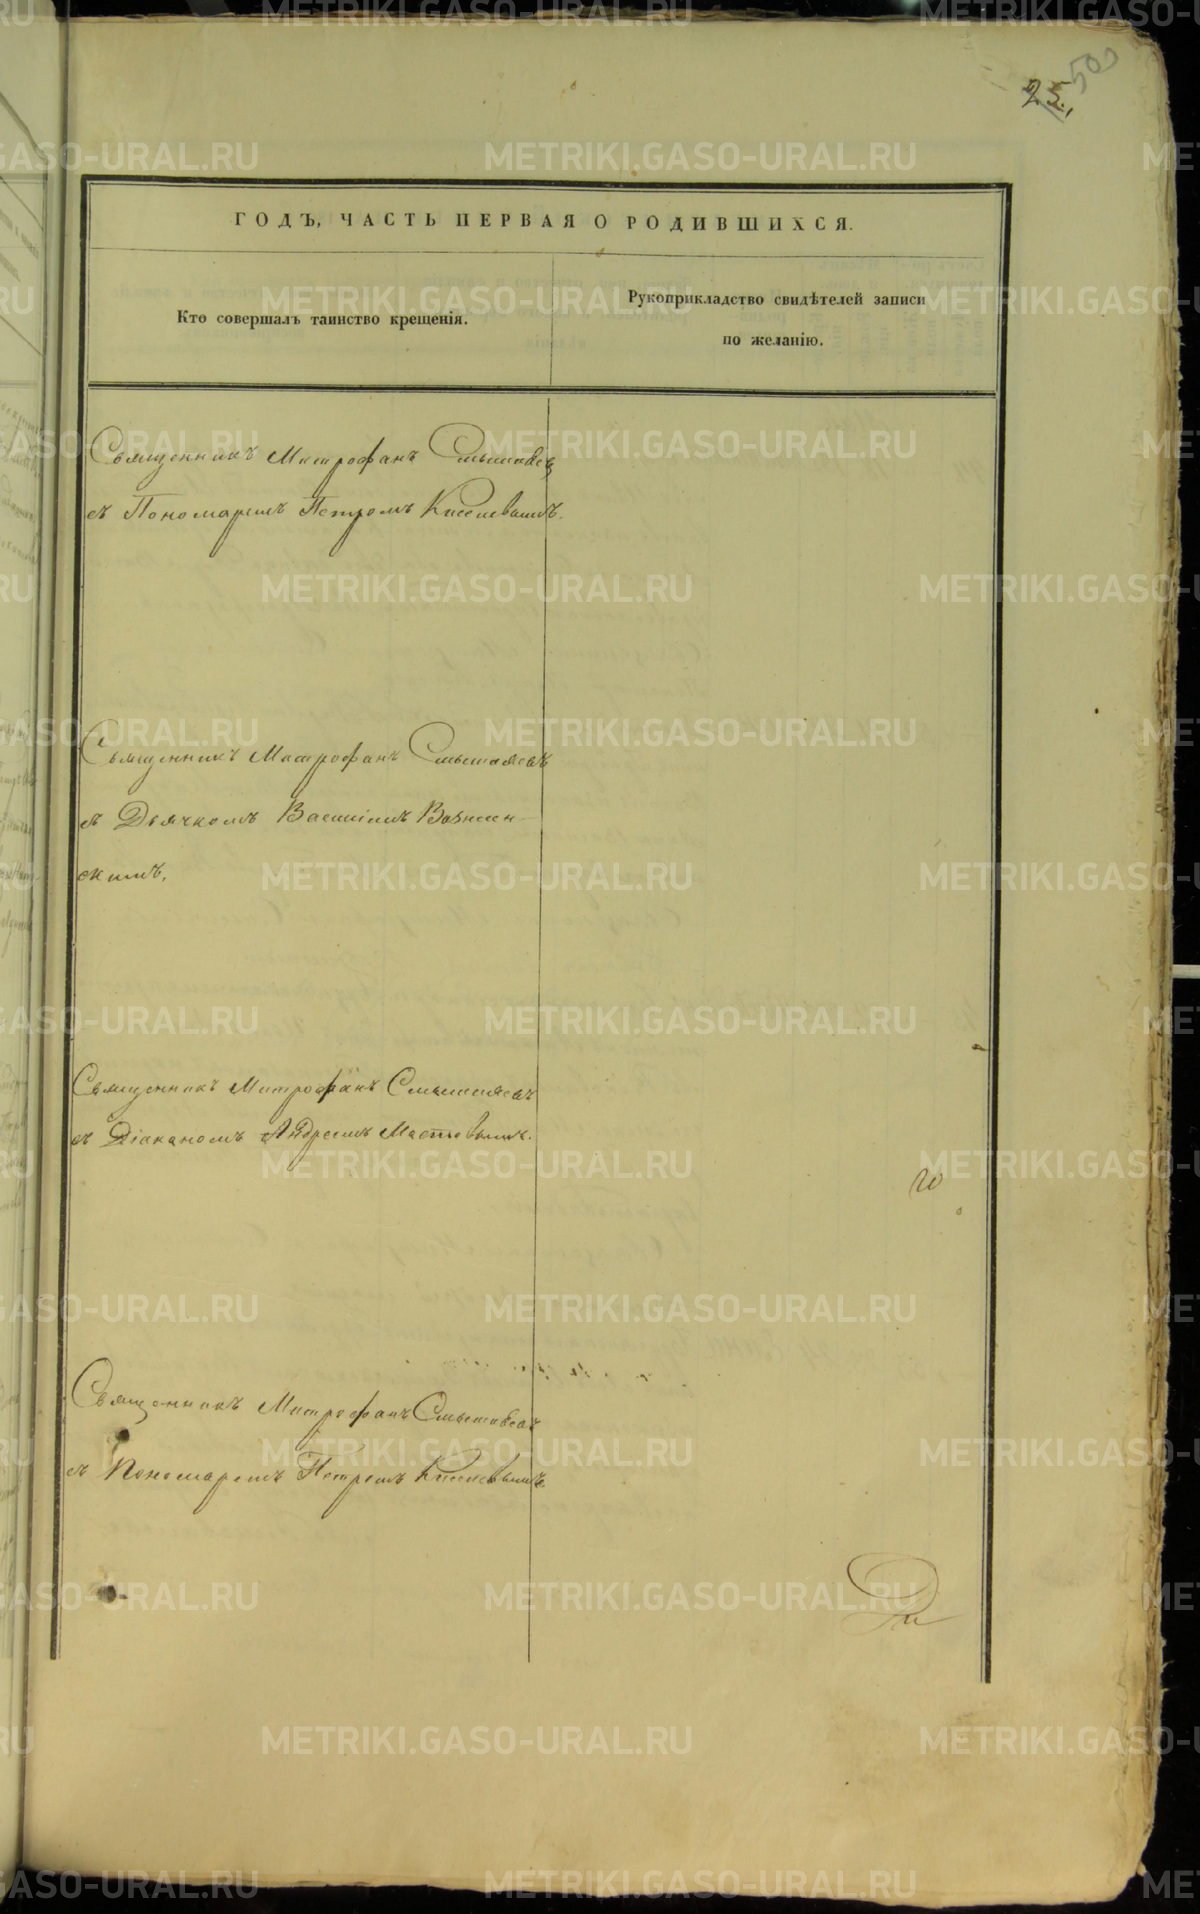 25,
500
ГОДЪ, ЧАСТЬ ПЕРВАЯ О РОДИВШИХСЯ.
Кто совершалъ таинство крещенія.
Рукоприкладство свидѣтелей записи
по желанію.
Священникъ Митрофанъ
съ Пономаремъ Петромъ Киселевымъ.
Священникъ Митрофанъ
съ Дьячкомъ Василіемъ Вознесен-
скимъ.
Священникъ Митрофанъ
съ Діакономъ Андреемъ
Священникъ Митрофанъ
съ Пономаремъ Петромъ Киселевымъ.
METRIKI.GASO-URAL.RU